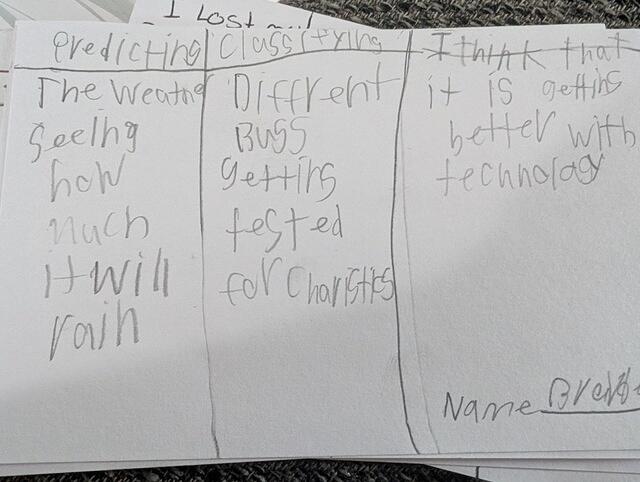 I Lost
Predicting
The Weathe
Seeing
how
much
it will
rain
Classifying
Diffrent
Buss
getting
tested
for Charistics
I think that
it is getting
better with
technology
Name